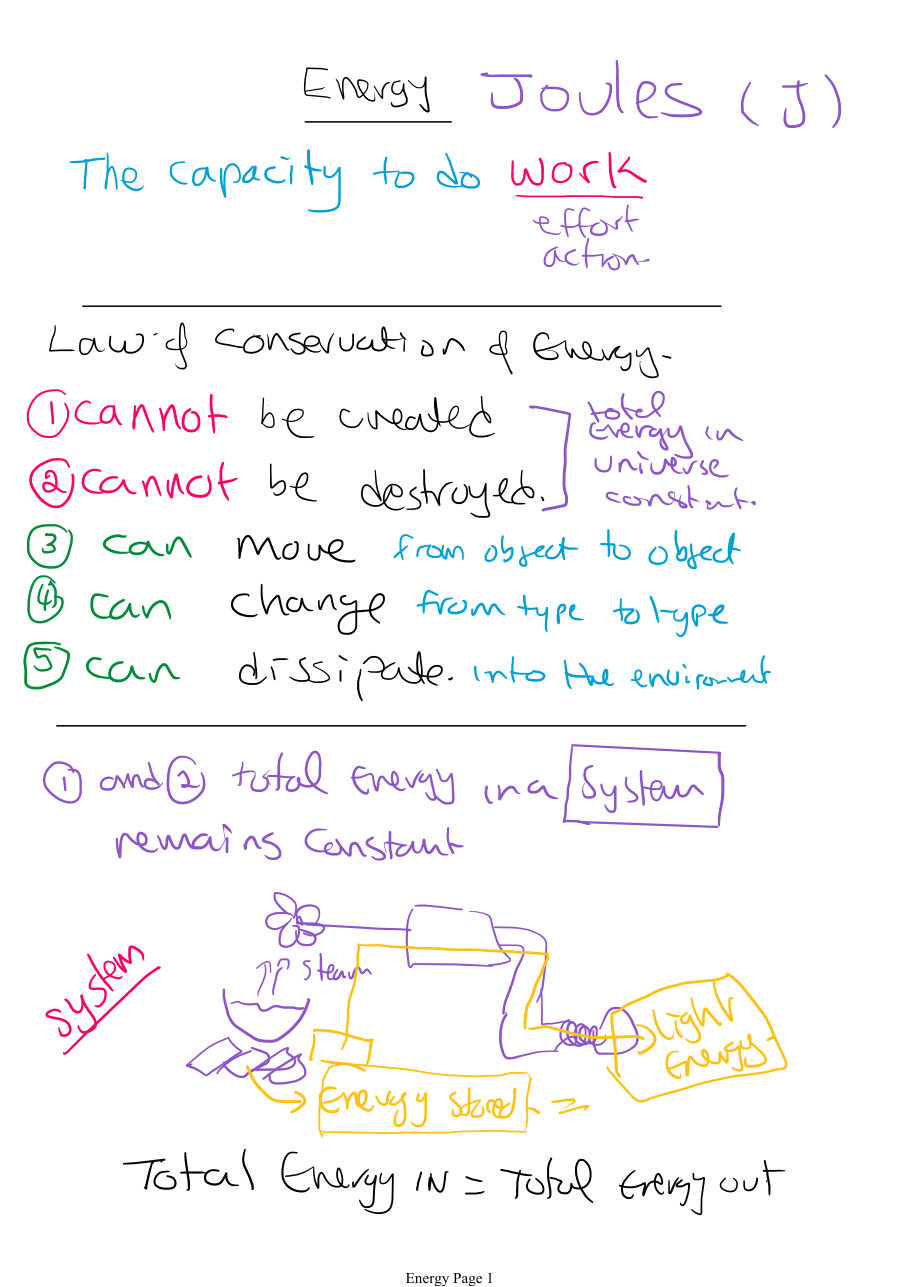 Energy Joules (J)
The capacity to do work
effort
action
Law of Conservation of Energy.
① cannot be created
② cannot be destroyed.
total
Energy in
universe
constant.
③ can move from object to object
④ can change from type to type
⑤ can dissipate. into the environment
① and ② total Energy in a System
remains constant
steam
system
Light
Energy
Energy stored =
Total Energy IN = Total Energy out
Energy Page 1